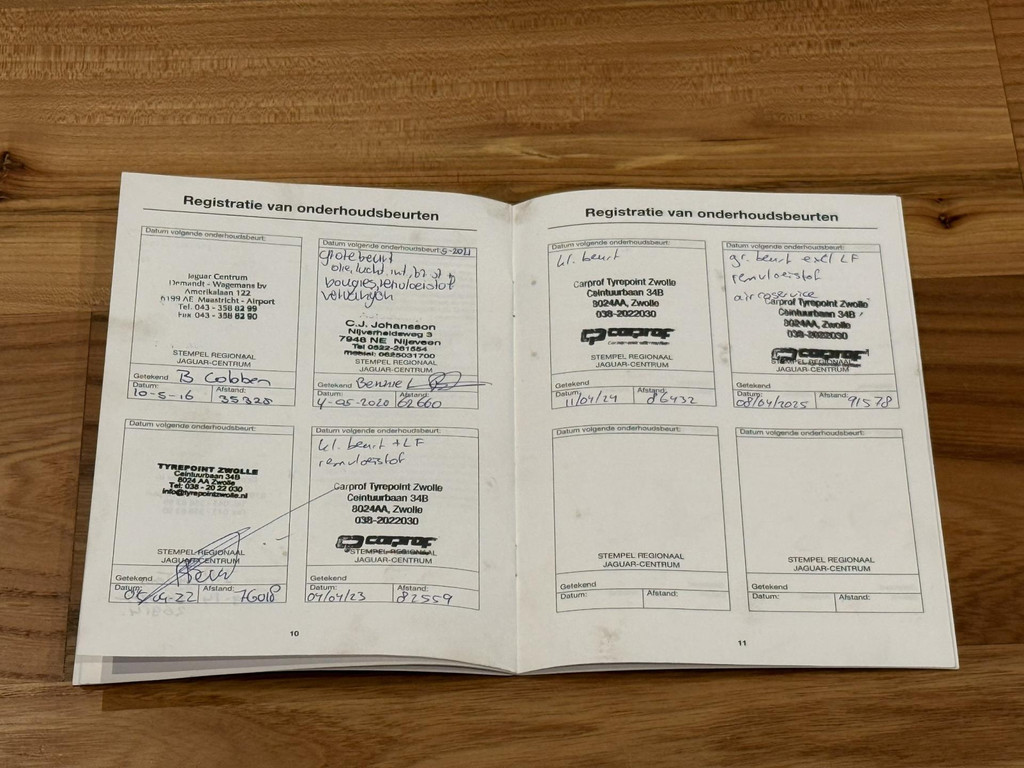 Registratie van onderhoudsbeurten
Datum volgende onderhoudsbeurt:
Jaguar Centrum
Demandt - Wagemans bv
Amerikalaan 122
6199 AE Maastricht - Airport
Tel. 043 - 358 82 99
Fax 043 - 358 82 90
STEMPEL REGIONAAL
JAGUAR-CENTRUM
Getekend B Cobben
Datum: Afstand:
10-5-16 35328
Datum volgende onderhoudsbeurt: 5-2021
grote beurt
olie, lucht, int,
bougies, remvloeistof
C.J. Johansson
Nijverheidsweg 3
7948 NE Nijeveen
Tel 0522-261554
mobiel: 0625031700
STEMPEL REGIONAAL
JAGUAR-CENTRUM
Getekend Bennie L
Datum: Afstand:
4-05-2020 62660
Datum volgende onderhoudsbeurt:
TYREPOINT ZWOLLE
Ceintuurbaan 34B
8024 AA Zwolle
Tel: 038 - 20 22 030
info@tyrepointzwolle.nl
STEMPEL REGIONAAL
JAGUAR-CENTRUM
Getekend
Datum: Afstand:
Datum volgende onderhoudsbeurt:
kl. beurt + LF
remvloeistof
Carprof Tyrepoint Zwolle
Ceintuurbaan 34B
8024AA, Zwolle
038-2022030
carprof
STEMPEL REGIONAAL
JAGUAR-CENTRUM
Getekend
Datum: Afstand:
04/04/23 82559
10
Registratie van onderhoudsbeurten
Datum volgende onderhoudsbeurt:
kl. beurt
Carprof Tyrepoint Zwolle
Ceintuurbaan 34B
8024AA, Zwolle
038-2022030
carprof
STEMPEL REGIONAAL
JAGUAR-CENTRUM
Getekend
Datum: Afstand:
11/04/24 86432
Datum volgende onderhoudsbeurt:
gr. beurt excl LF
remvloeistof
aircoservice
Carprof Tyrepoint Zwolle
Ceintuurbaan 34B
8024AA, Zwolle
038-2022030
carprof
STEMPEL REGIONAAL
JAGUAR-CENTRUM
Getekend
Datum: Afstand:
08/04/2025 91578
Datum volgende onderhoudsbeurt:
STEMPEL REGIONAAL
JAGUAR-CENTRUM
Getekend
Datum: Afstand:
Datum volgende onderhoudsbeurt:
STEMPEL REGIONAAL
JAGUAR-CENTRUM
Getekend
Datum: Afstand:
11